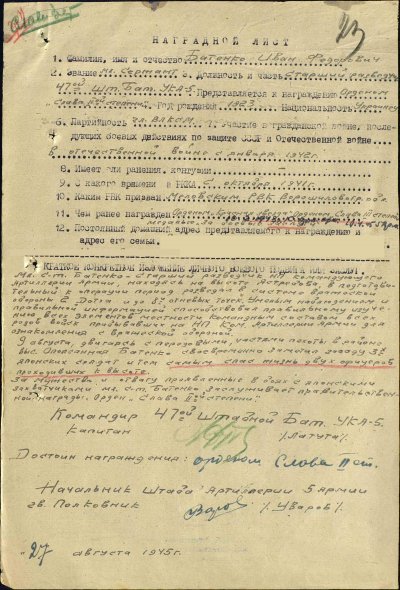 НАГРАДНОЙ ЛИСТ
1. Фамилия, имя и отчество Батенко Иван Федорович
2. Звание мл. Сержант 3. Должность и часть Старший разведчик
47ой Шт. Бат. УКА-5. Представляется к награждению Орденом
"Слава IIой степени" Год рождения 1923 Национальность Украинец
6. Партийность чл. ВЛКСМ 7. Участие в гражданской войне, после-
дующих боевых действиях по защите СССР и Отечественной войне
в отечественной войне с января 1942г.
8. Имеет ли ранения, контузии
9. С какого времени в РККА С октября 1941г.
10. Каким РВК призван Меловским РВК Ворошиловогр. обл.
11. Чем ранее награжден Орденом Слава
12. Постоянный домашний адрес представляемого к награждению и
адрес его семьи.
КРАТКОЕ КОНКРЕТНОЕ ИЗЛОЖЕНИЕ ЛИЧНОГО БОЕВОГО ПОДВИГА ИЛИ ЗАСЛУГ.
Мл. с-т. Батенко - Старший разведчик НП командующего
Артиллерии Армии находясь на высоте в подготови-
тельный к операции период разведал в системе вражеской
обороны 2 Дота и до 8и огневых точек. Умелым наблюдением и
правильной информацией способствовал правильному изуче-
нию всех элементов местности командным составом всех
родов войск прибывавших на НП Ком. Артиллерии Армии для
ознакомления с вражеской обороной.
9 августа, двигаясь с передовыми частями пехоты в районе
выс. Батенко своевременно заметил засаду 3х
японских солдат и тем самым спас жизнь двух офицеров
проходивших к высоте.
За мужество и отвагу проявленные в боях с японскими
захватчиками мл. с-т. Батенко заслуживает правительствен-
ной награды. Орден "Слава IIой степени".
Командир 47ой Штабной Бат. УКА-5.
Капитан /Латута/.
Достоин награждения: орденом Слава II ст.
Начальник Штаба Артиллерии 5 Армии
гв. Полковник /Уваров/.
"27" августа 1945г.